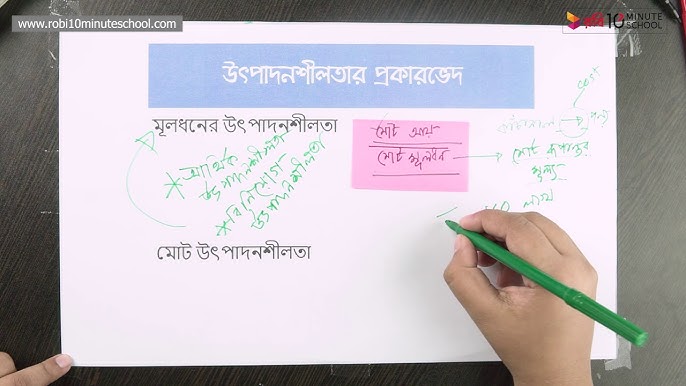 www.robi10minuteschool.com
রবি 10 MINUTE SCHOOL
উৎপাদনশীলতার প্রকারভেদ
মূলধনের উৎপাদনশীলতা
মোট আয়
মোট মূলধন
cost
কাঁচামাল → পণ্য
মোট রূপান্তর
মূল্য
* আর্থিক
উৎপাদনশীলতা
* বিনিয়োগ
উৎপাদনশীলতা
লাখ
মোট উৎপাদনশীলতা